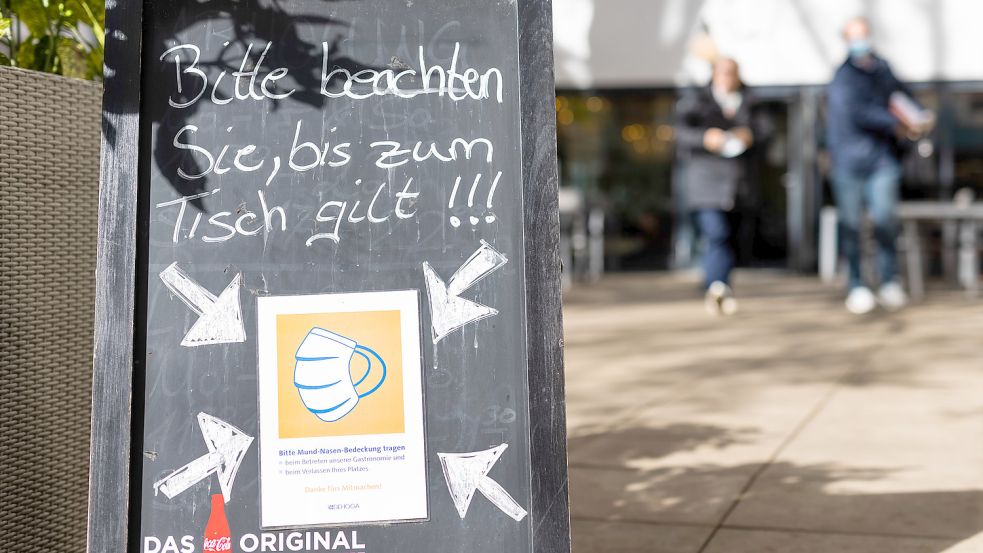 Bitte beachten
Sie, bis zum
Tisch gilt !!!
Bitte Mund-Nasen-Bedeckung tragen
beim Betreten unserer Gastronomie und
beim Verlassen Ihres Platzes.
Danke fürs Mitmachen!
DEHOGA
DAS Coca-Cola ORIGINAL